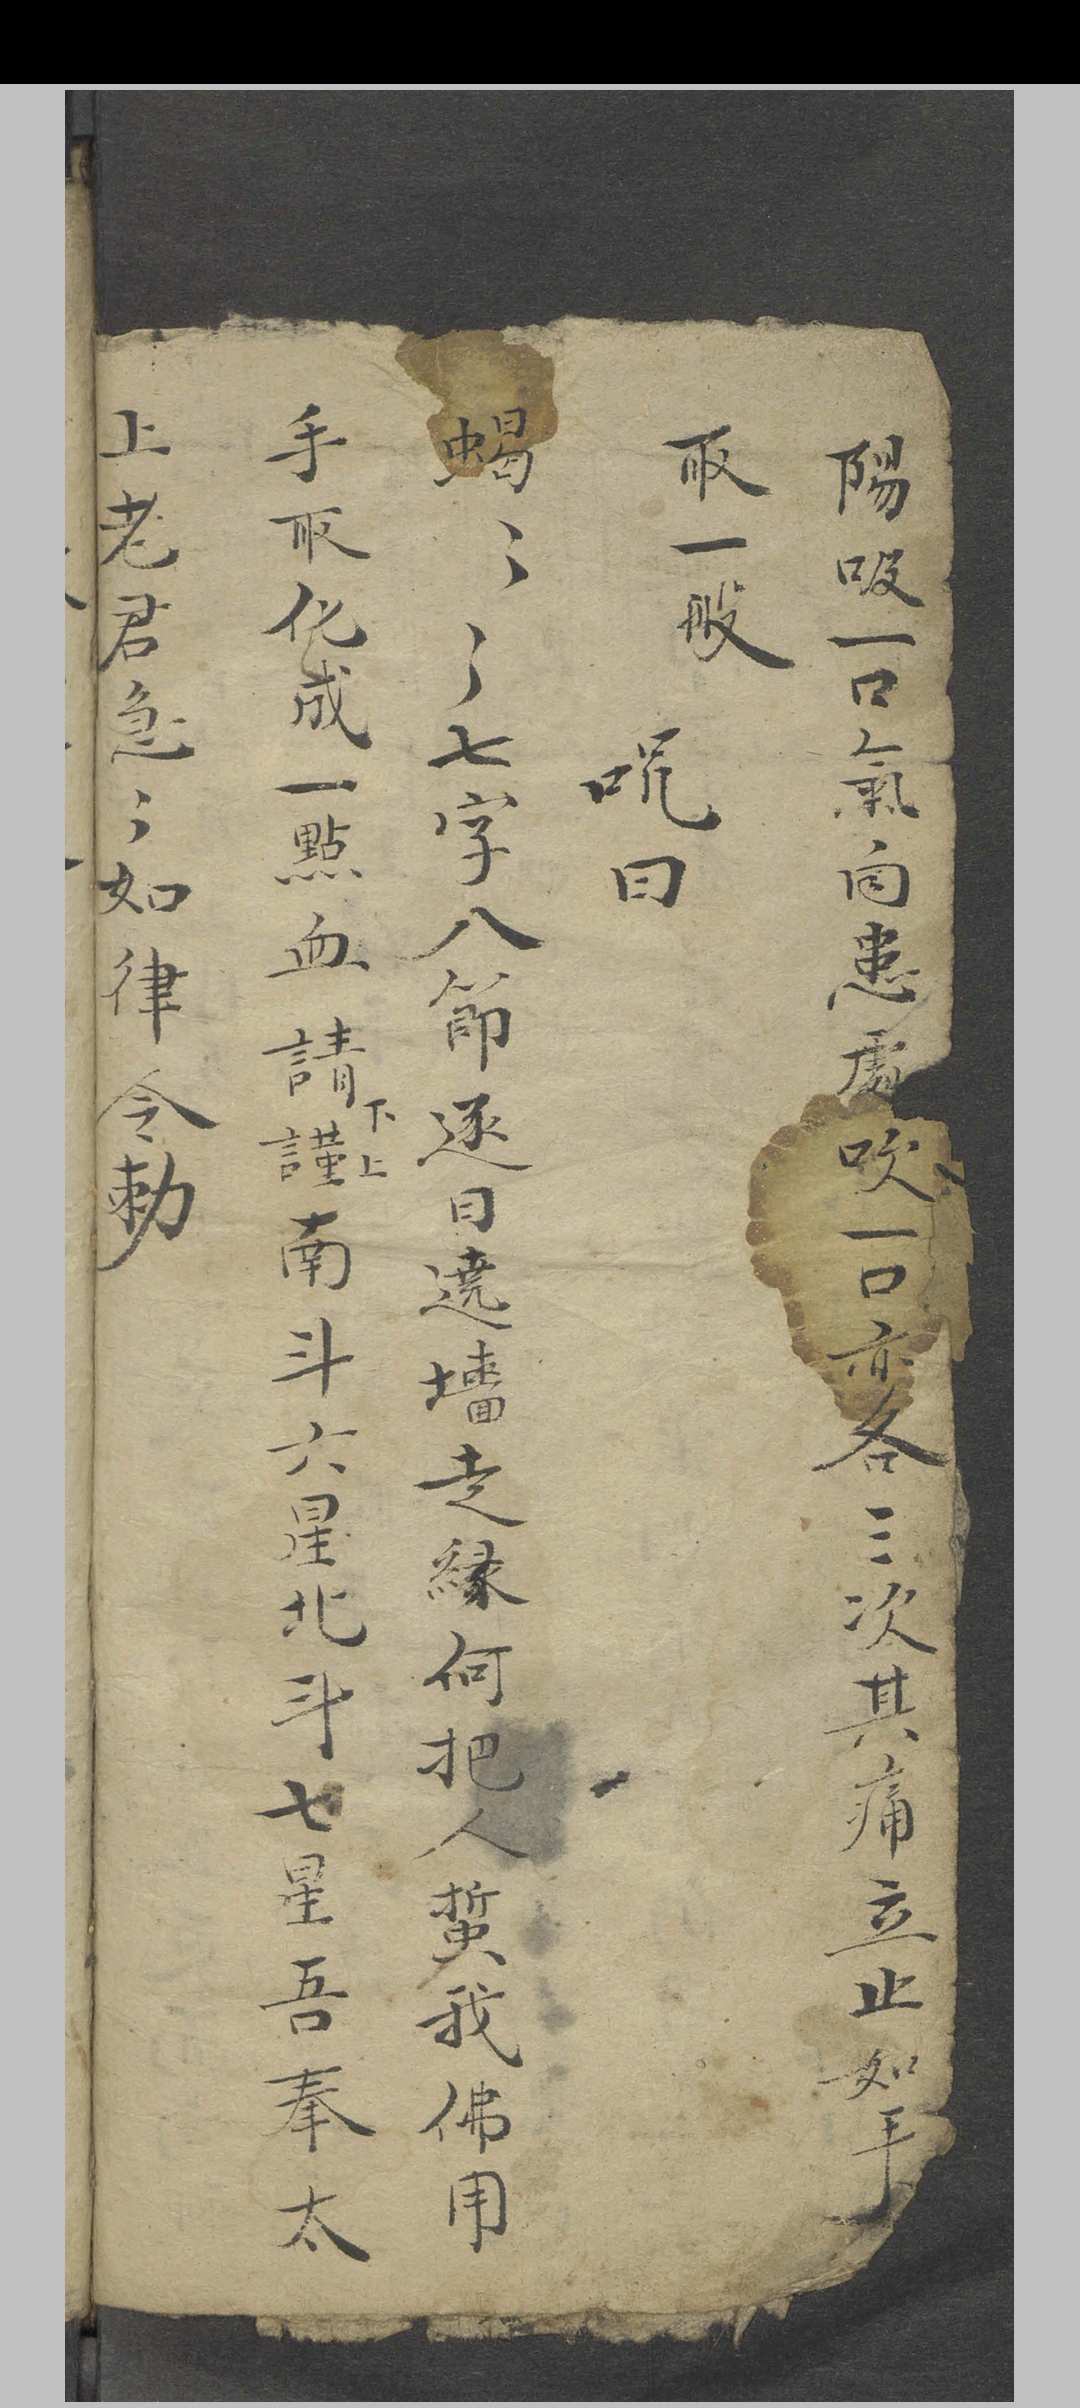 陽吸一口氣向患處吹一口亦各三次其痛立止如手
取一般
咒曰
蝎〻〻七字八節逐日遶墻走緣何把人蜇我佛用
手取化成一點血請下謹上南斗六星北斗七星吾奉太
上老君急〻如律令勅